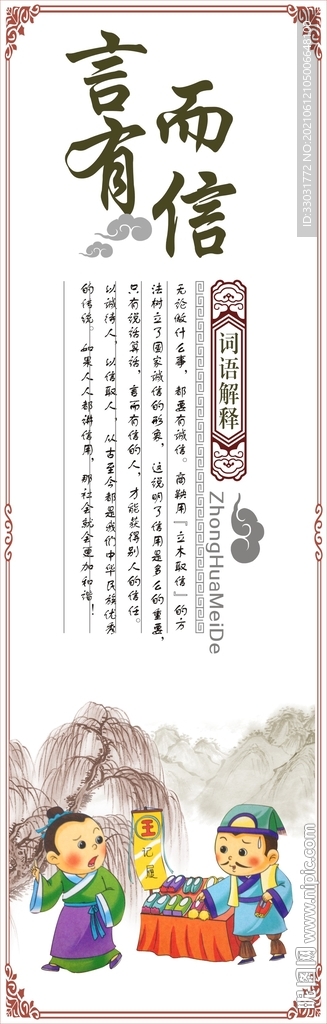 言而有信
词语解释
ZhongHuaMeiDe
无论做什么事，都要有诚信。商鞅用『立木取信』的方
法树立了国家诚信的形象，这说明了信用是多么的重要，
只有说话算话，言而有信的人，才能获得别人的信任。
以诚待人，以信取人，从古至今都是我们中华民族优秀
的传统。如果人人都讲信用，那社会就会更加和谐！
王记履
昵图网 www.nipic.com
ID:33031772 NO:20210612105006648106